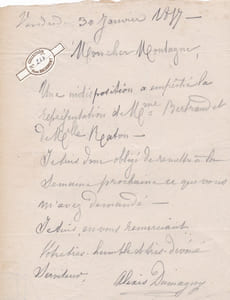 Vendredi 30 Janvier 1857 -
Mon cher Montagne,
Une indisposition a empêché la
représentation de Mme Bertrand et
de Mlle Raton -
Je suis donc obligé de remettre à la
Semaine prochaine ce que vous
m'avez demandé -
Je suis, en vous remerciant
Votre très humble & très dévoué
Serviteur,
Alexis